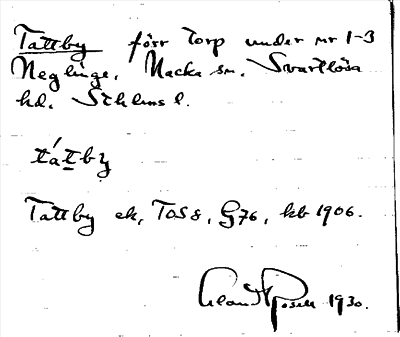 Tattby förr torp under nr 1-3
Neglinge, Nacka sn. Svartlösa
hd. Sthlms l.
tátby
Tattby ek, TOS 8, G76, kb 1906.
1930.